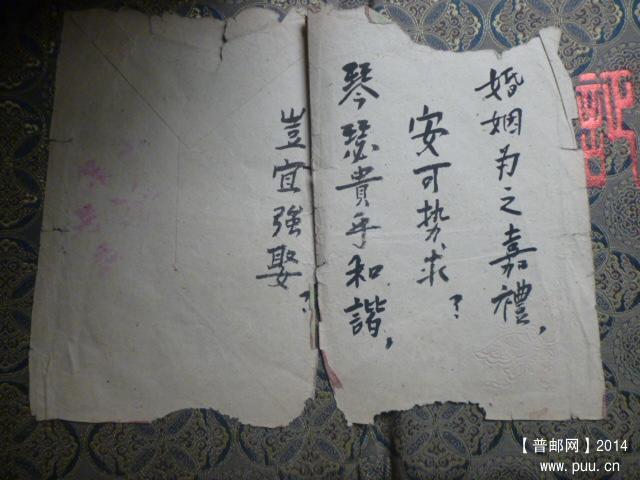 婚姻为之嘉禮，
安可势求？
琴瑟貴乎和諧，
豈宜強娶？
【普邮网】2014
www.puu.cn